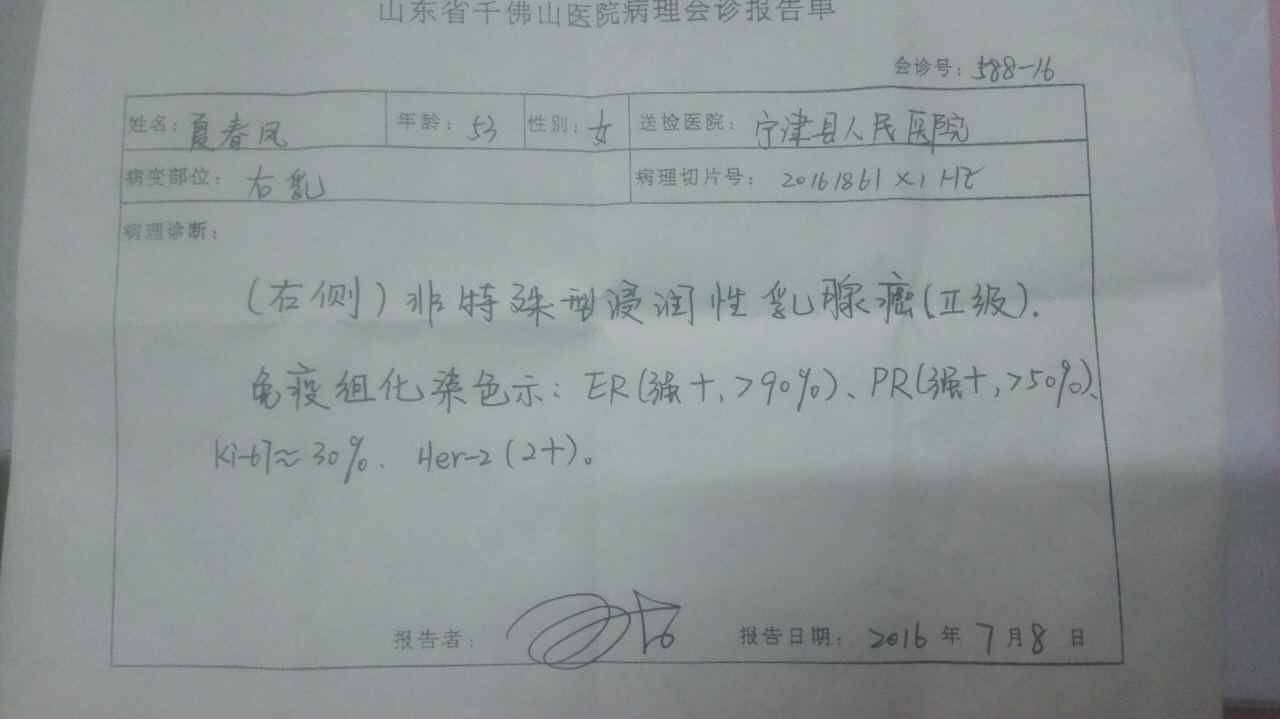 山东省千佛山医院病理会诊报告单
会诊号：588-16
姓名：夏春凤 年龄：53 性别：女 送检医院：宁津县人民医院
病变部位：右乳 病理切片号：20161861×1 HE
病理诊断：
（右侧）非特殊型浸润性乳腺癌（Ⅱ级）.
免疫组化染色示：ER（强+，>90%）、PR（强+，>50%）、
Ki-67≈30%. Her-2（2+）。
报告者： 报告日期：2016年7月8日